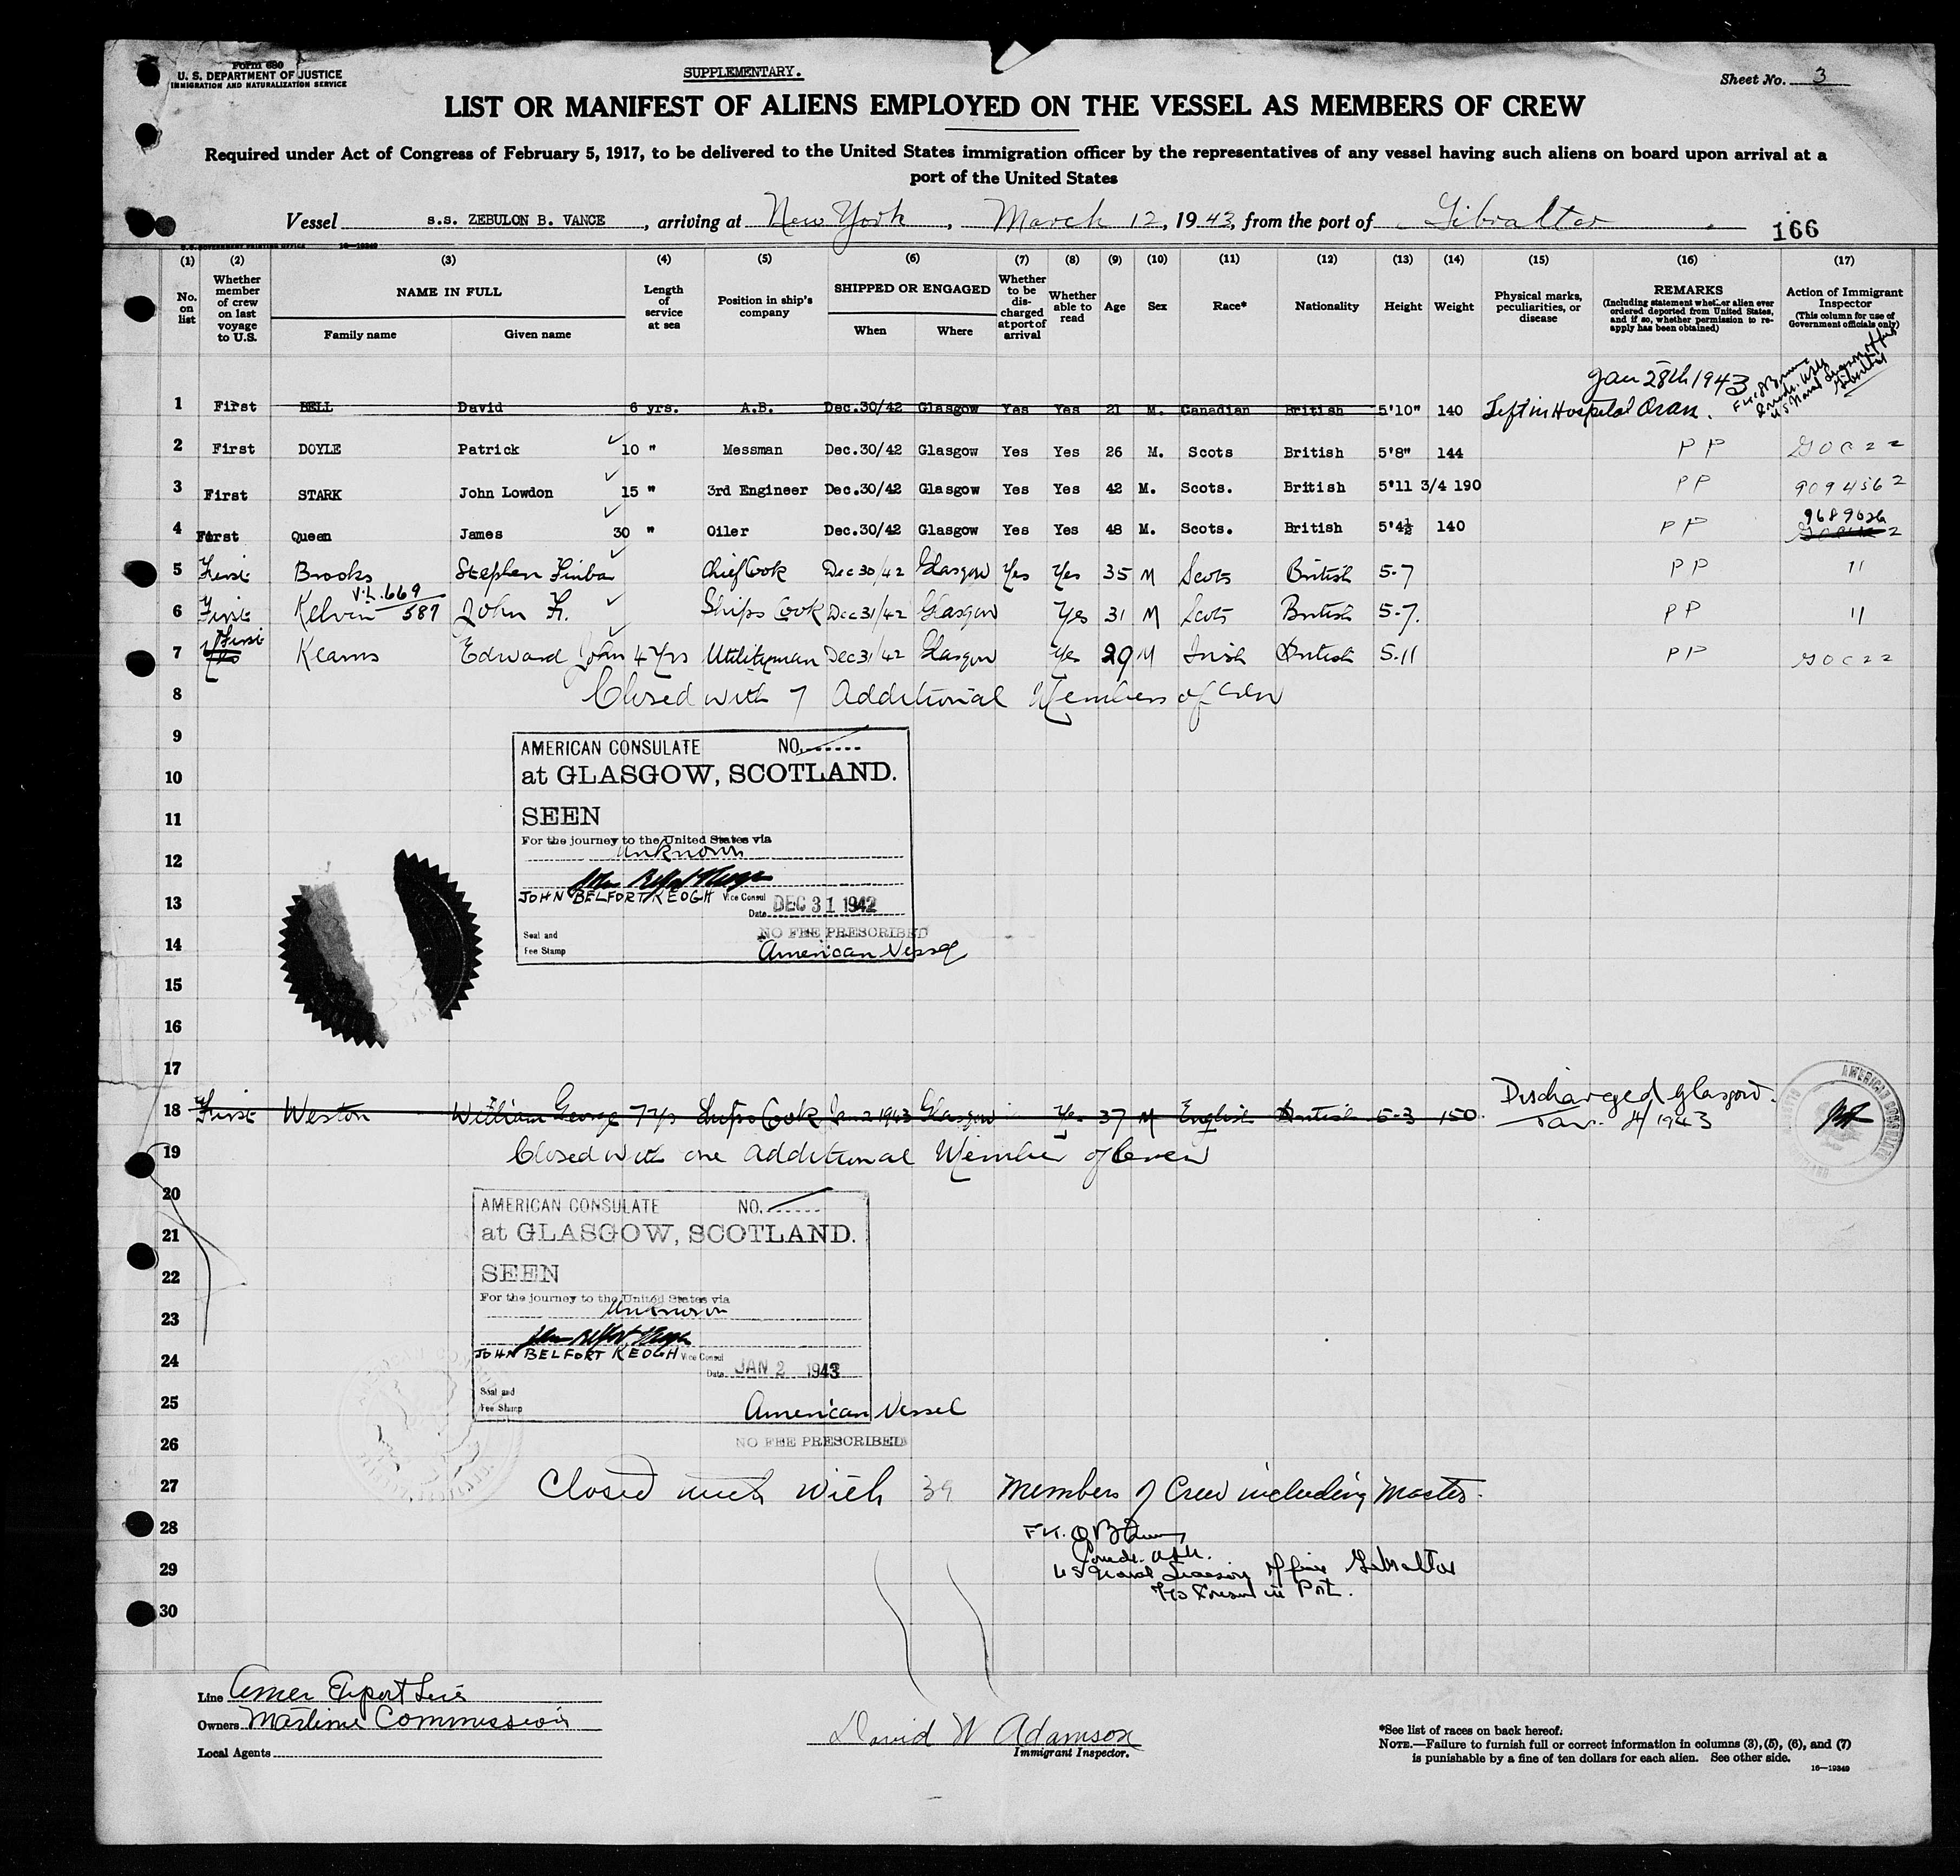 Form 680
U. S. DEPARTMENT OF JUSTICE
IMMIGRATION AND NATURALIZATION SERVICE
SUPPLEMENTARY.
Sheet No. 3
LIST OR MANIFEST OF ALIENS EMPLOYED ON THE VESSEL AS MEMBERS OF CREW
Required under Act of Congress of February 5, 1917, to be delivered to the United States immigration officer by the representatives of any vessel having such aliens on board upon arrival at a
port of the United States
Vessel s.s. ZEBULON B. VANCE, arriving at New York, March 12, 1943, from the port of Gibraltar.
166
U.S. GOVERNMENT PRINTING OFFICE 16-19349
(1) No. on list
(2) Whether member of crew on last voyage to U.S.
(3) NAME IN FULL Family name Given name
(4) Length of service at sea
(5) Position in ship's company
(6) SHIPPED OR ENGAGED When Where
(7) Whether to be discharged at port of arrival
(8) Whether able to read
(9) Age
(10) Sex
(11) Race*
(12) Nationality
(13) Height
(14) Weight
(15) Physical marks, peculiarities, or disease
(16) REMARKS (Including statement whether alien ever ordered deported from United States, and if so, whether permission to reapply has been obtained)
(17) Action of Immigrant Inspector (This column for use of Government officials only)
Jan 28th 1943
1 First BELL David 6 yrs. A.B. Dec.30/42 Glasgow Yes Yes 21 M. Canadian British 5'10" 140 Left in Hospital Oran.
2 First DOYLE Patrick 10 " Messman Dec.30/42 Glasgow Yes Yes 26 M. Scots British 5'8" 144 PP
3 First STARK John Lowdon 15 " 3rd Engineer Dec.30/42 Glasgow Yes Yes 42 M. Scots. British 5'11 3/4 190 PP 9094562
4 First Queen James 30 " Oiler Dec.30/42 Glasgow Yes Yes 48 M. Scots. British 5'4½ 140 PP 9689026
5 First Brooks Stephen Finbar Chief Cook Dec 30/42 Glasgow Yes Yes 35 M Scots British 5-7 PP "
V.L. 669
6 First Kelvin 587 John F. Ships Cook Dec 31/42 Glasgow Yes 31 M Scots British 5-7. PP "
7 First Kearns Edward John 4 Yrs Utilityman Dec 31/42 Glasgow Yes 29 M Irish British 5-11 PP
8 Closed with 7 Additional Members of Crew
9
AMERICAN CONSULATE NO.
10
at GLASGOW, SCOTLAND.
11
SEEN
For the journey to the United States via
12
unknown
13
JOHN BELFORT KEOGH Vice Consul
Date DEC 31 1942
Seal and
Fee Stamp
NO FEE PRESCRIBED
14
American Vessel
15
16
17
18 First Weston William George 7 Yrs Ships Cook Jan 2 1943 Glasgow Yes 37 M English British 5-3 150. Discharged Glasgow.
Jan. 4/1943
AMERICAN CONSULATE
19 Closed with one Additional Member of Crew
20
AMERICAN CONSULATE NO.
21
at GLASGOW, SCOTLAND.
22
SEEN
For the journey to the United States via
23
Unknown
24
JOHN BELFORT KEOGH Vice Consul
Date JAN 2 1943
Seal and
Fee Stamp
25
American Vessel
26
NO FEE PRESCRIBED
27 Closed with 39 Members of Crew including Master.
28
29
U S Naval Liaison Office Gibraltar
30
Line Amer Export Lines
Owners Maritime Commission
Local Agents
David W Adamson
Immigrant Inspector.
*See list of races on back hereof.
NOTE.—Failure to furnish full or correct information in columns (3), (5), (6), and (7)
is punishable by a fine of ten dollars for each alien. See other side.
16-19349